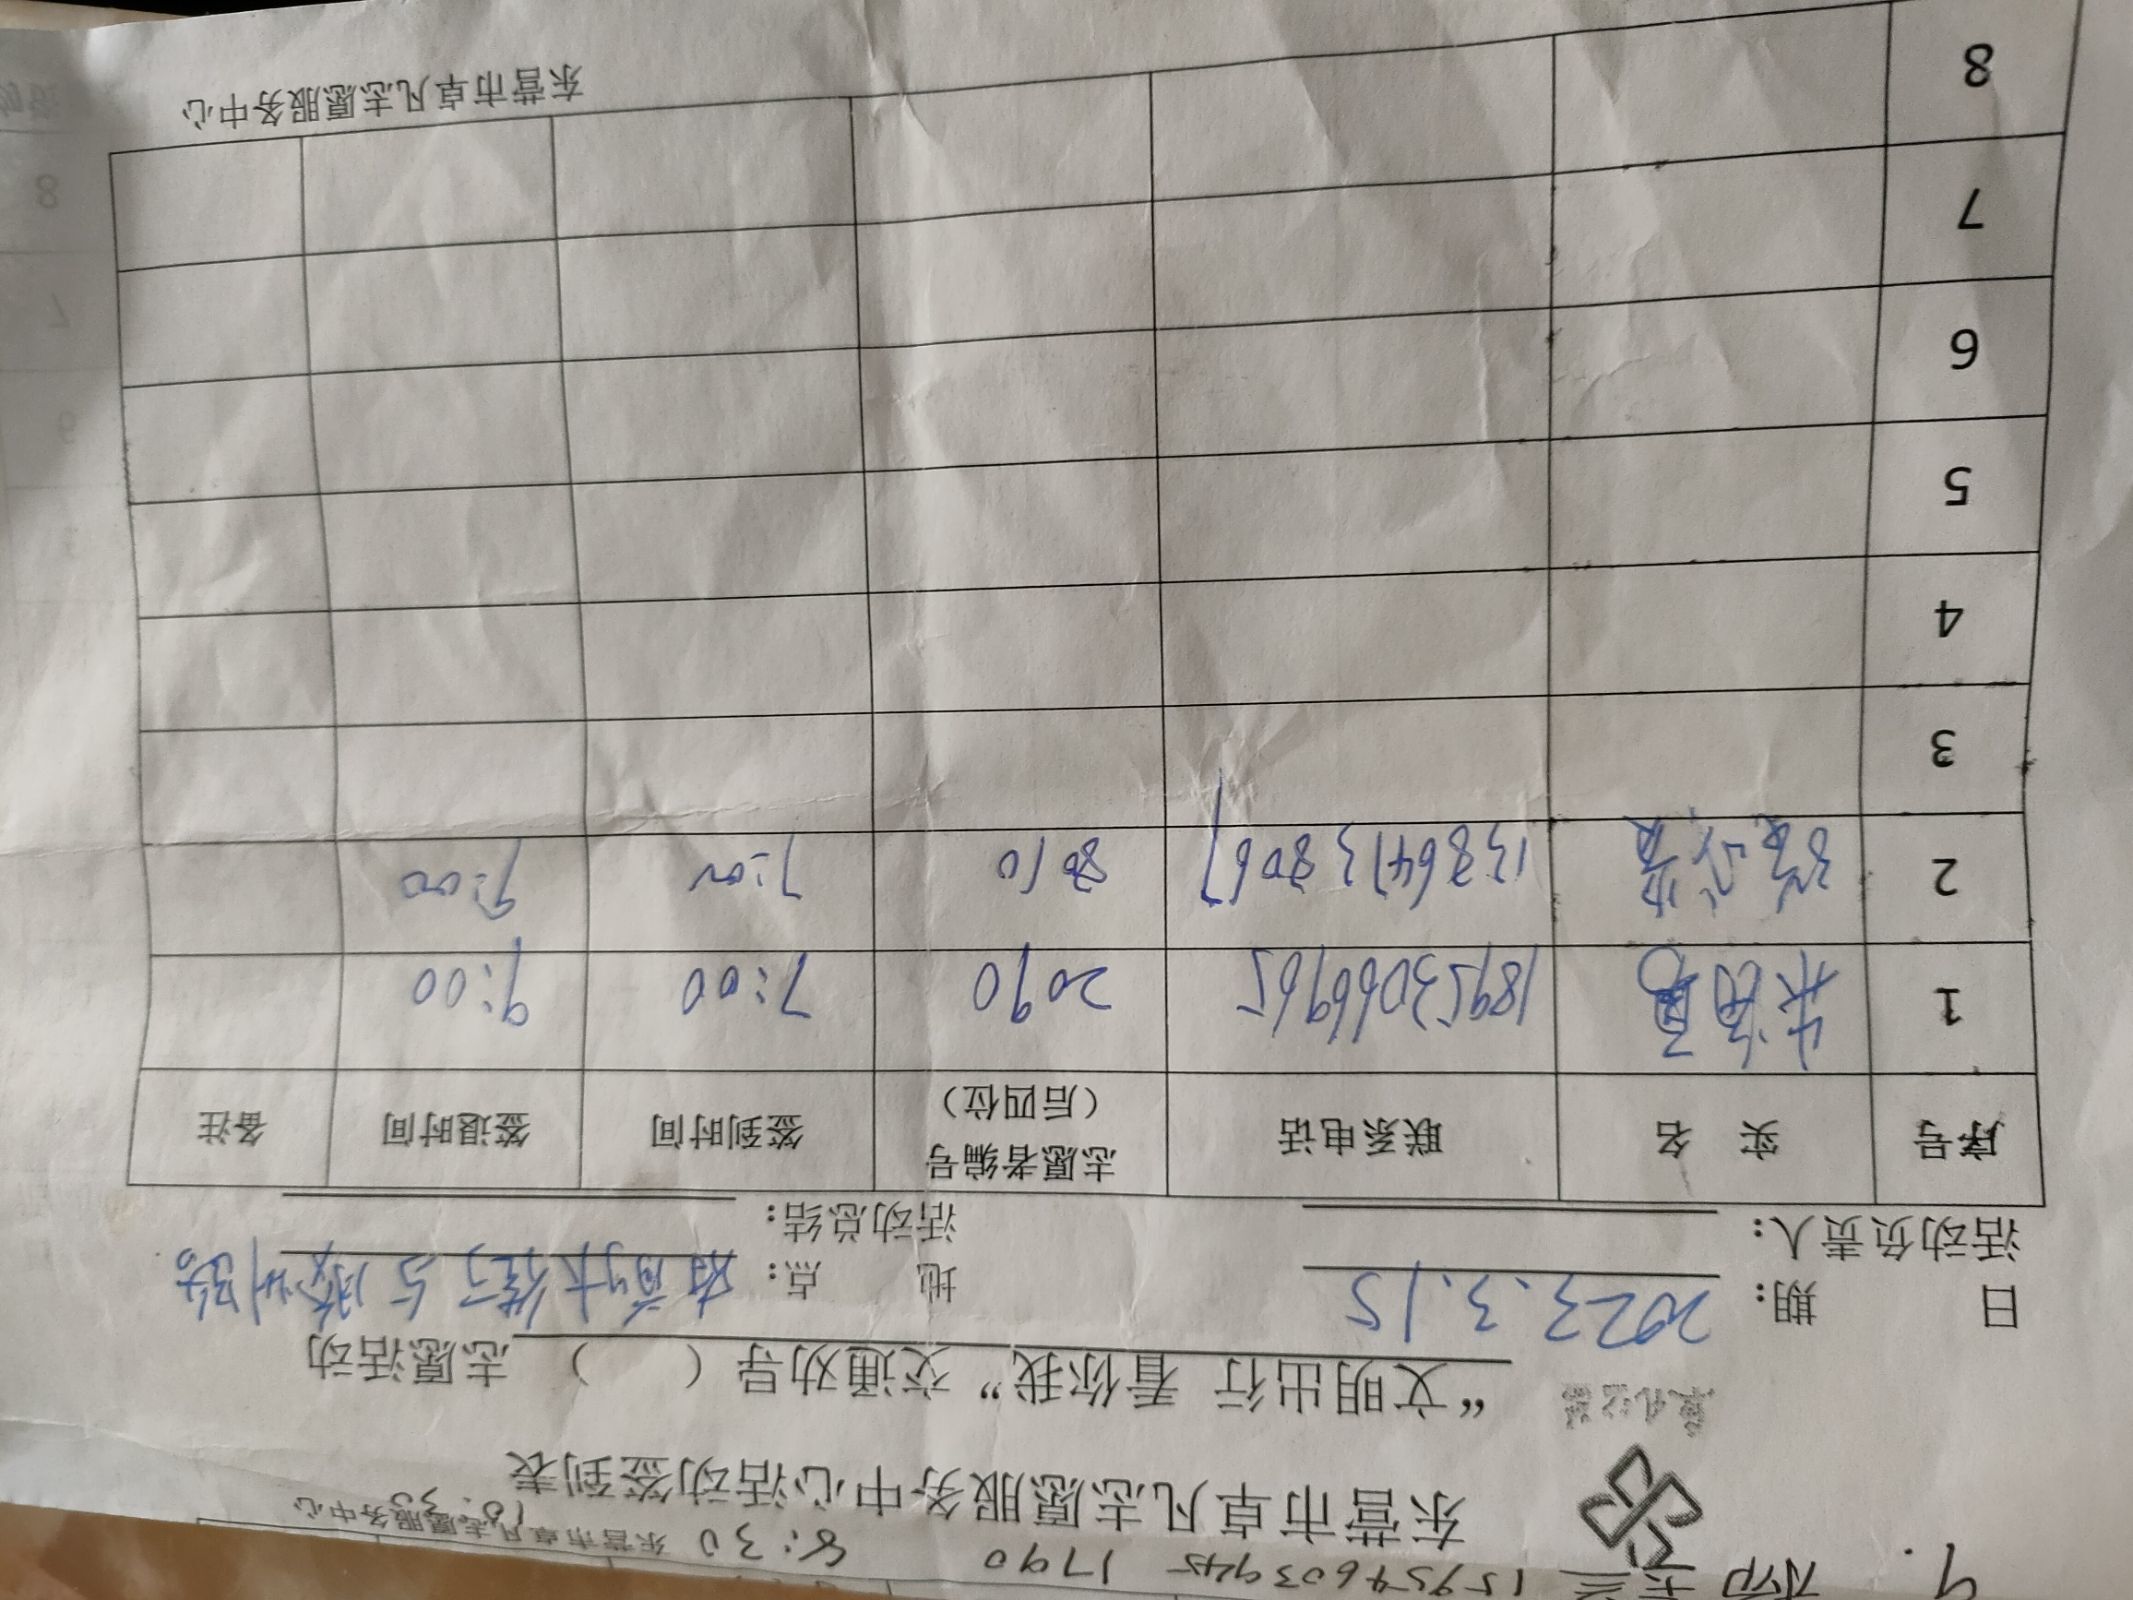 15954603945 1790 8:30
东营市卓凡志愿服务中心
东营市卓凡志愿服务中心活动签到表
卓凡公益
“文明出行 看你我”交通劝导（ ）志愿活动
日 期: 2023.3.15 地 点:
活动负责人: 活动总结:
序号 实 名 联系电话 志愿者编号（后四位） 签到时间 签退时间 备注
1 18953066965 2090 7:00 9:00
2 13864738067 8010 7:00 9:00
3
4
5
6
7
8
东营市卓凡志愿服务中心